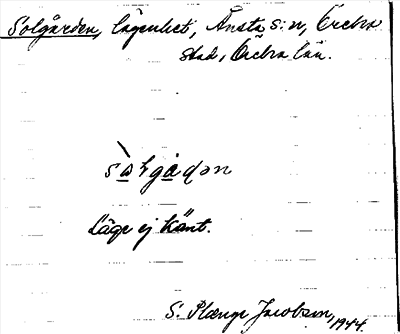 Solgården, lägenhet, Ånsta s:n, Örebro
stad, Örebro län.
Läge ej känt.
S. Plænge Jacobson, 1944.